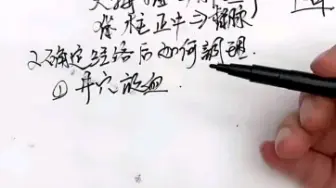 脊柱正中⇒督脉
2.确定经络后如何調理.
①井穴放血.